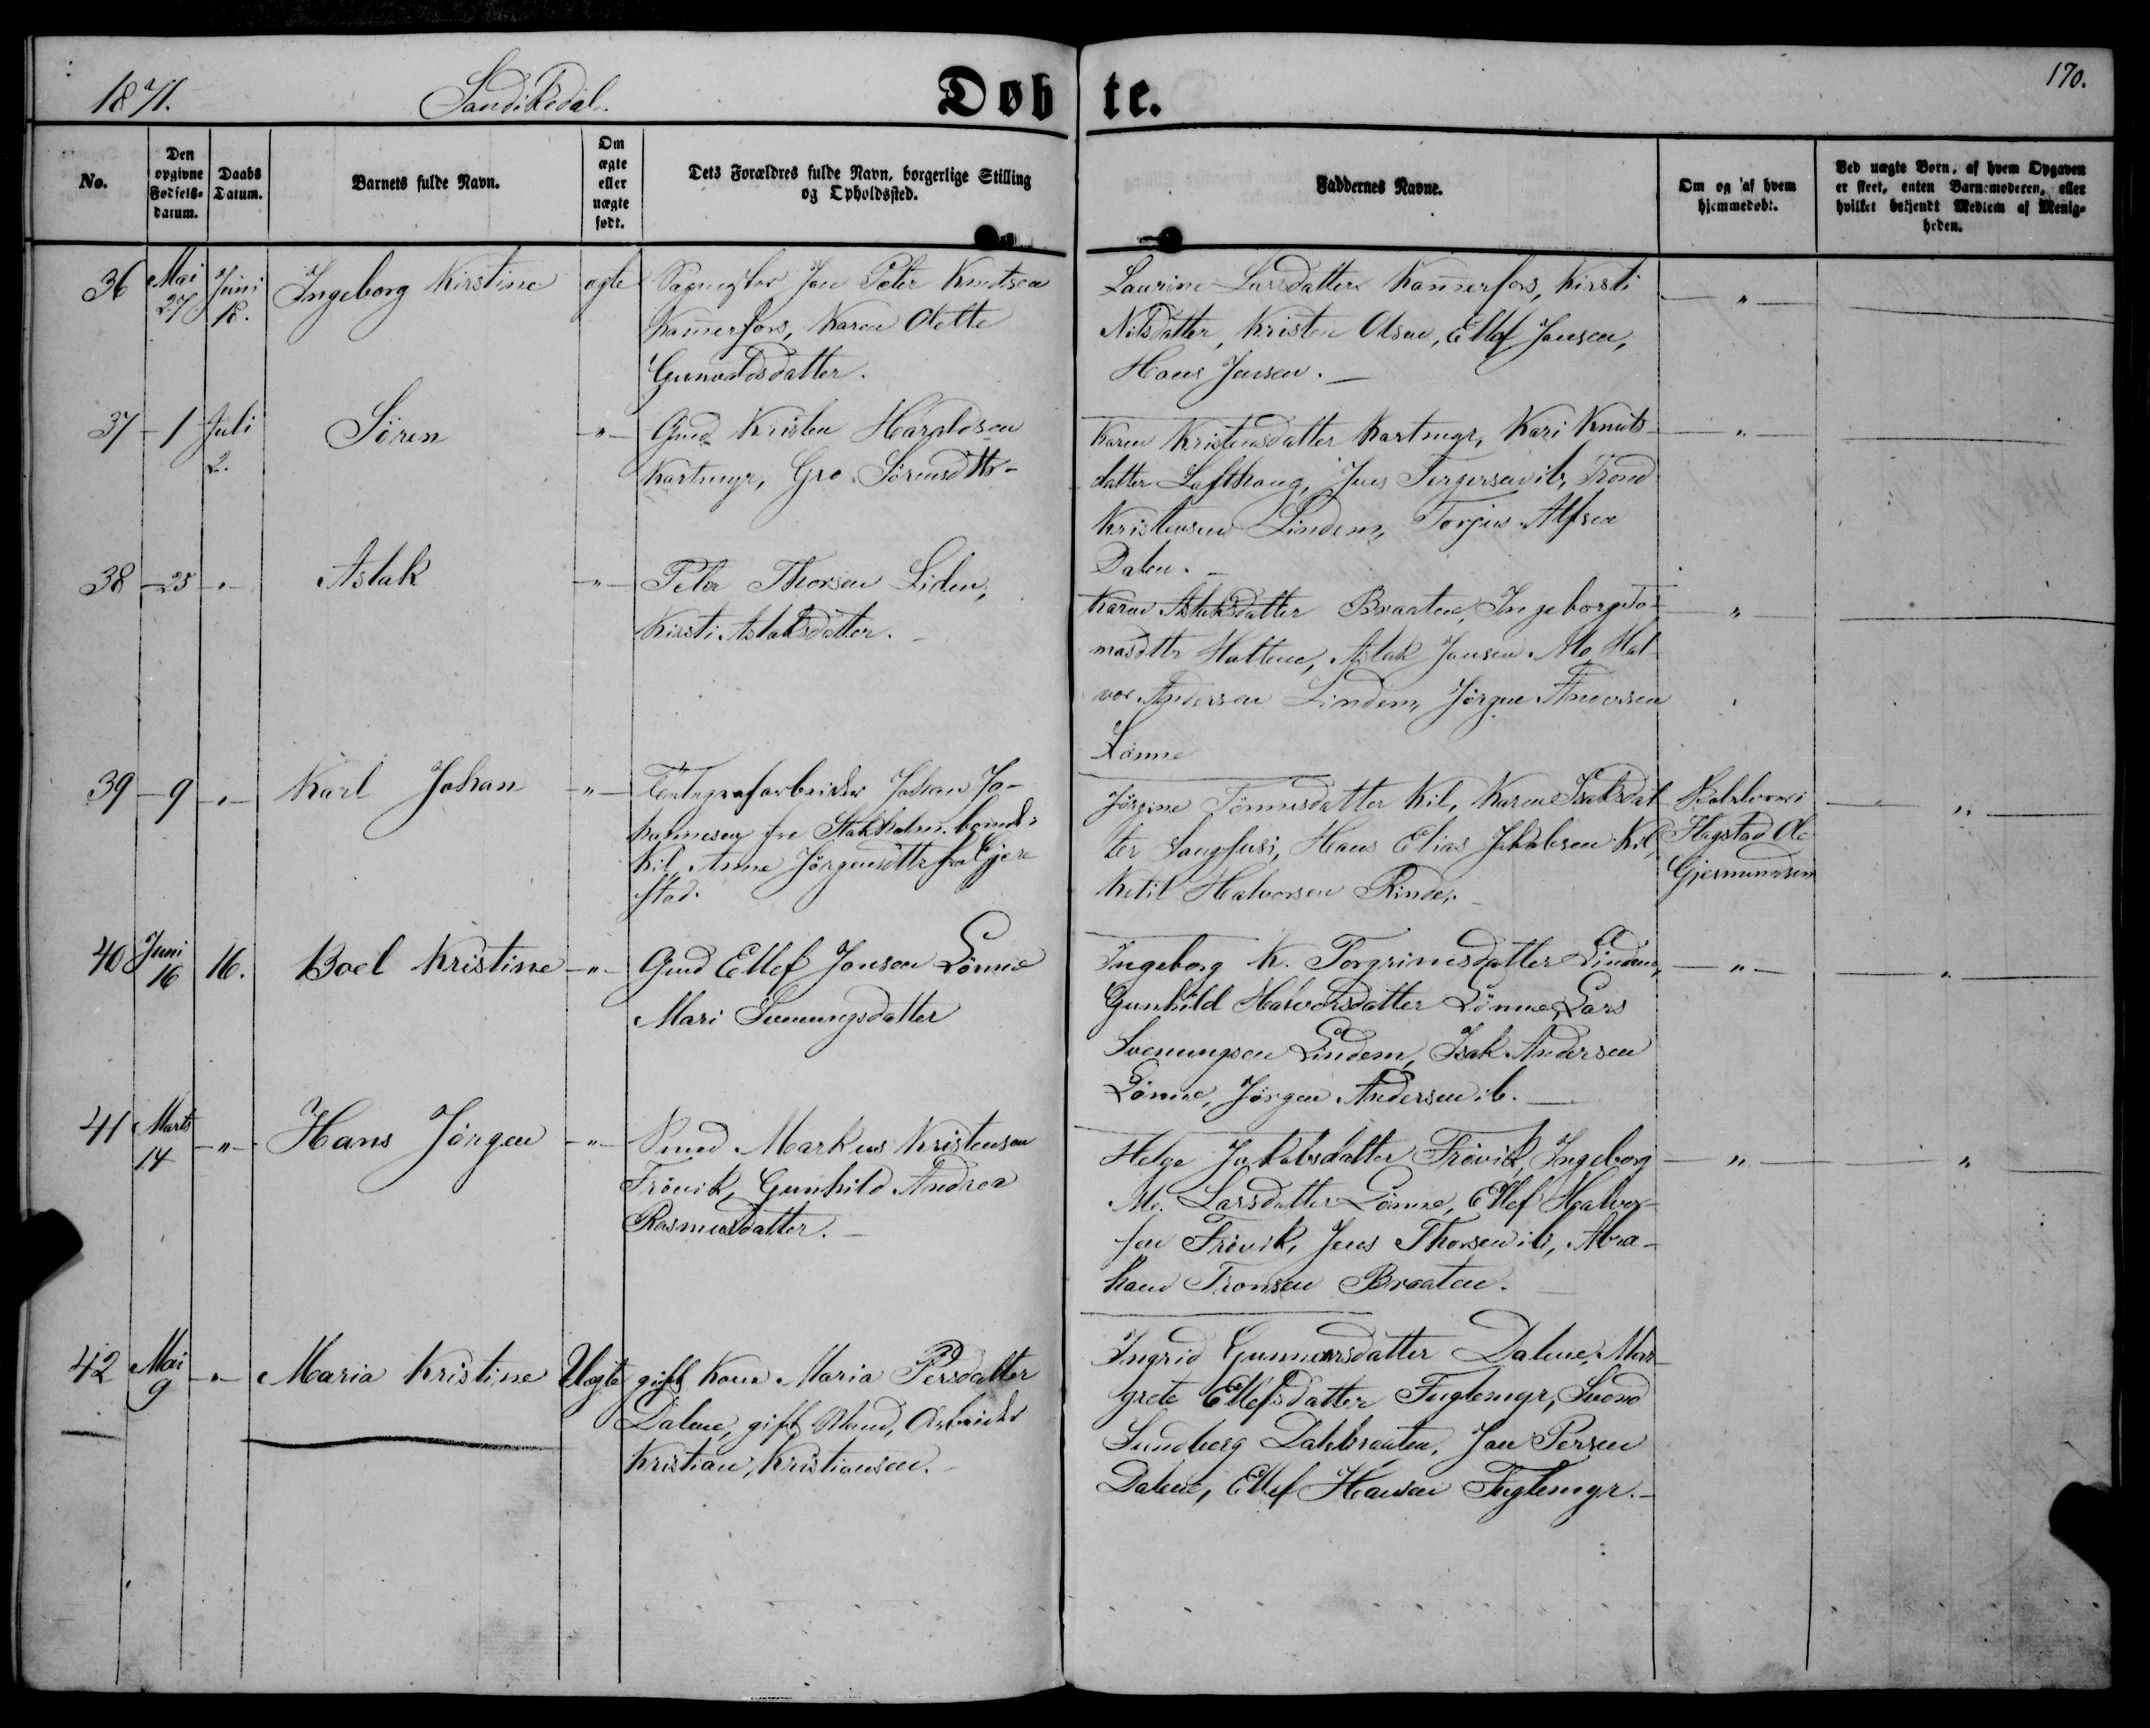 1871. Sandikedal. Døbte. 170.
No.
Den opgivne Fødsels-datum.
Daabs Datum.
Barnets fulde Navn.
Om ægte eller uægte født.
Dets Forældres fulde Navn, borgerlige Stilling og Opholdssted.
Faddernes Navne.
Om og af hvem hjemmedøbt.
Ved uægte Børn, af hvem Opgaven er skeet, enten Barnemoderen, eller hvilket bekjendt Medlem af Menigheden.
36 Mai 27 Juni 18. Ingeborg Kirstine ægte
Jan Peter Knutsen
Kammerfors, Karen Olette
Gunvaldsdatter.
Laurine Larsdatter Kammerfors, Kirsti
Nilsdatter, Kristen Olsen, Ellef Jansen,
Hans Jensen. —
"
37 - 1 Juli 2. Søren - " -
Gmd Kristen Haraldsen
Kartmyr, Gro Sørensdtr -
Karen Kristensdatter Kartmyr, Kari Knuts-
datter Lofthaug, Jens Tergersen ib, Trond
Kristensen Lindem, Torjus Alfsen
Dalen. -
"
38 - 25 - " - Aslak - " -
Peter Thorsen Liden,
Kirsti Aslaksdatter. -
Karen Aslaksdatter Braaten, Ingeborg To-
masdtr Hattene, Aslak Jansen Mo, Hal-
vor Andersen Lindem, Jørgen Andersen
Lønne
"
39 - 9 - " - Karl Johan - " -
Telegrafarbeider Johan Jo-
hannesen fra Stokholm. boende i
Kil, Anne Jørgensdtr fra Gjere
stad.
Jørgine Tønnesdatter Kil, Karen Isaksdat
ter Sangfusi, Hans Elias Jakobsen Kil,
Ketil Halvorsen Rinde. -
Hegstad Ole
Gjermundsen
"
40 Juni 16 16. Boel Kristine - " -
Gmd Ellef Jonsen Lønne
Mari Svenungsdatter
Ingeborg K. Torgrimsdatter Lindem,
Gunhild Halvorsdatter Lønne, Lars
Svenungsen Lindem, Isak Andersen
Lønne, Jørgen Andersen ib. —
" "
41 Marts 14 - " - Hans Jørgen - " -
Smed Markus Kristensen
Frøvik, Gunhild Andrea
Rasmusdatter. -
Helge Jakobsdatter Frøvik, Ingeborg
M. Larsdatter Lønne, Ellef Halvor-
sen Frøvik, Jens Thorsen ib, Abra-
ham Tronsen Braaten.
" "
42 Mai 9 - " - Maria Kristine Uægte
gift Kone Maria Persdatter
Dalene, gift Mand, Arbeider
Kristian Kristiansen. -
Ingrid Gunnarsdatter Dalene, Mar-
grete Ellefsdatter Fuglemyr, Svend
Sundberg Dalsbraaten, Jan Persen
Dalene, Ellef Hansen Fuglemyr. -